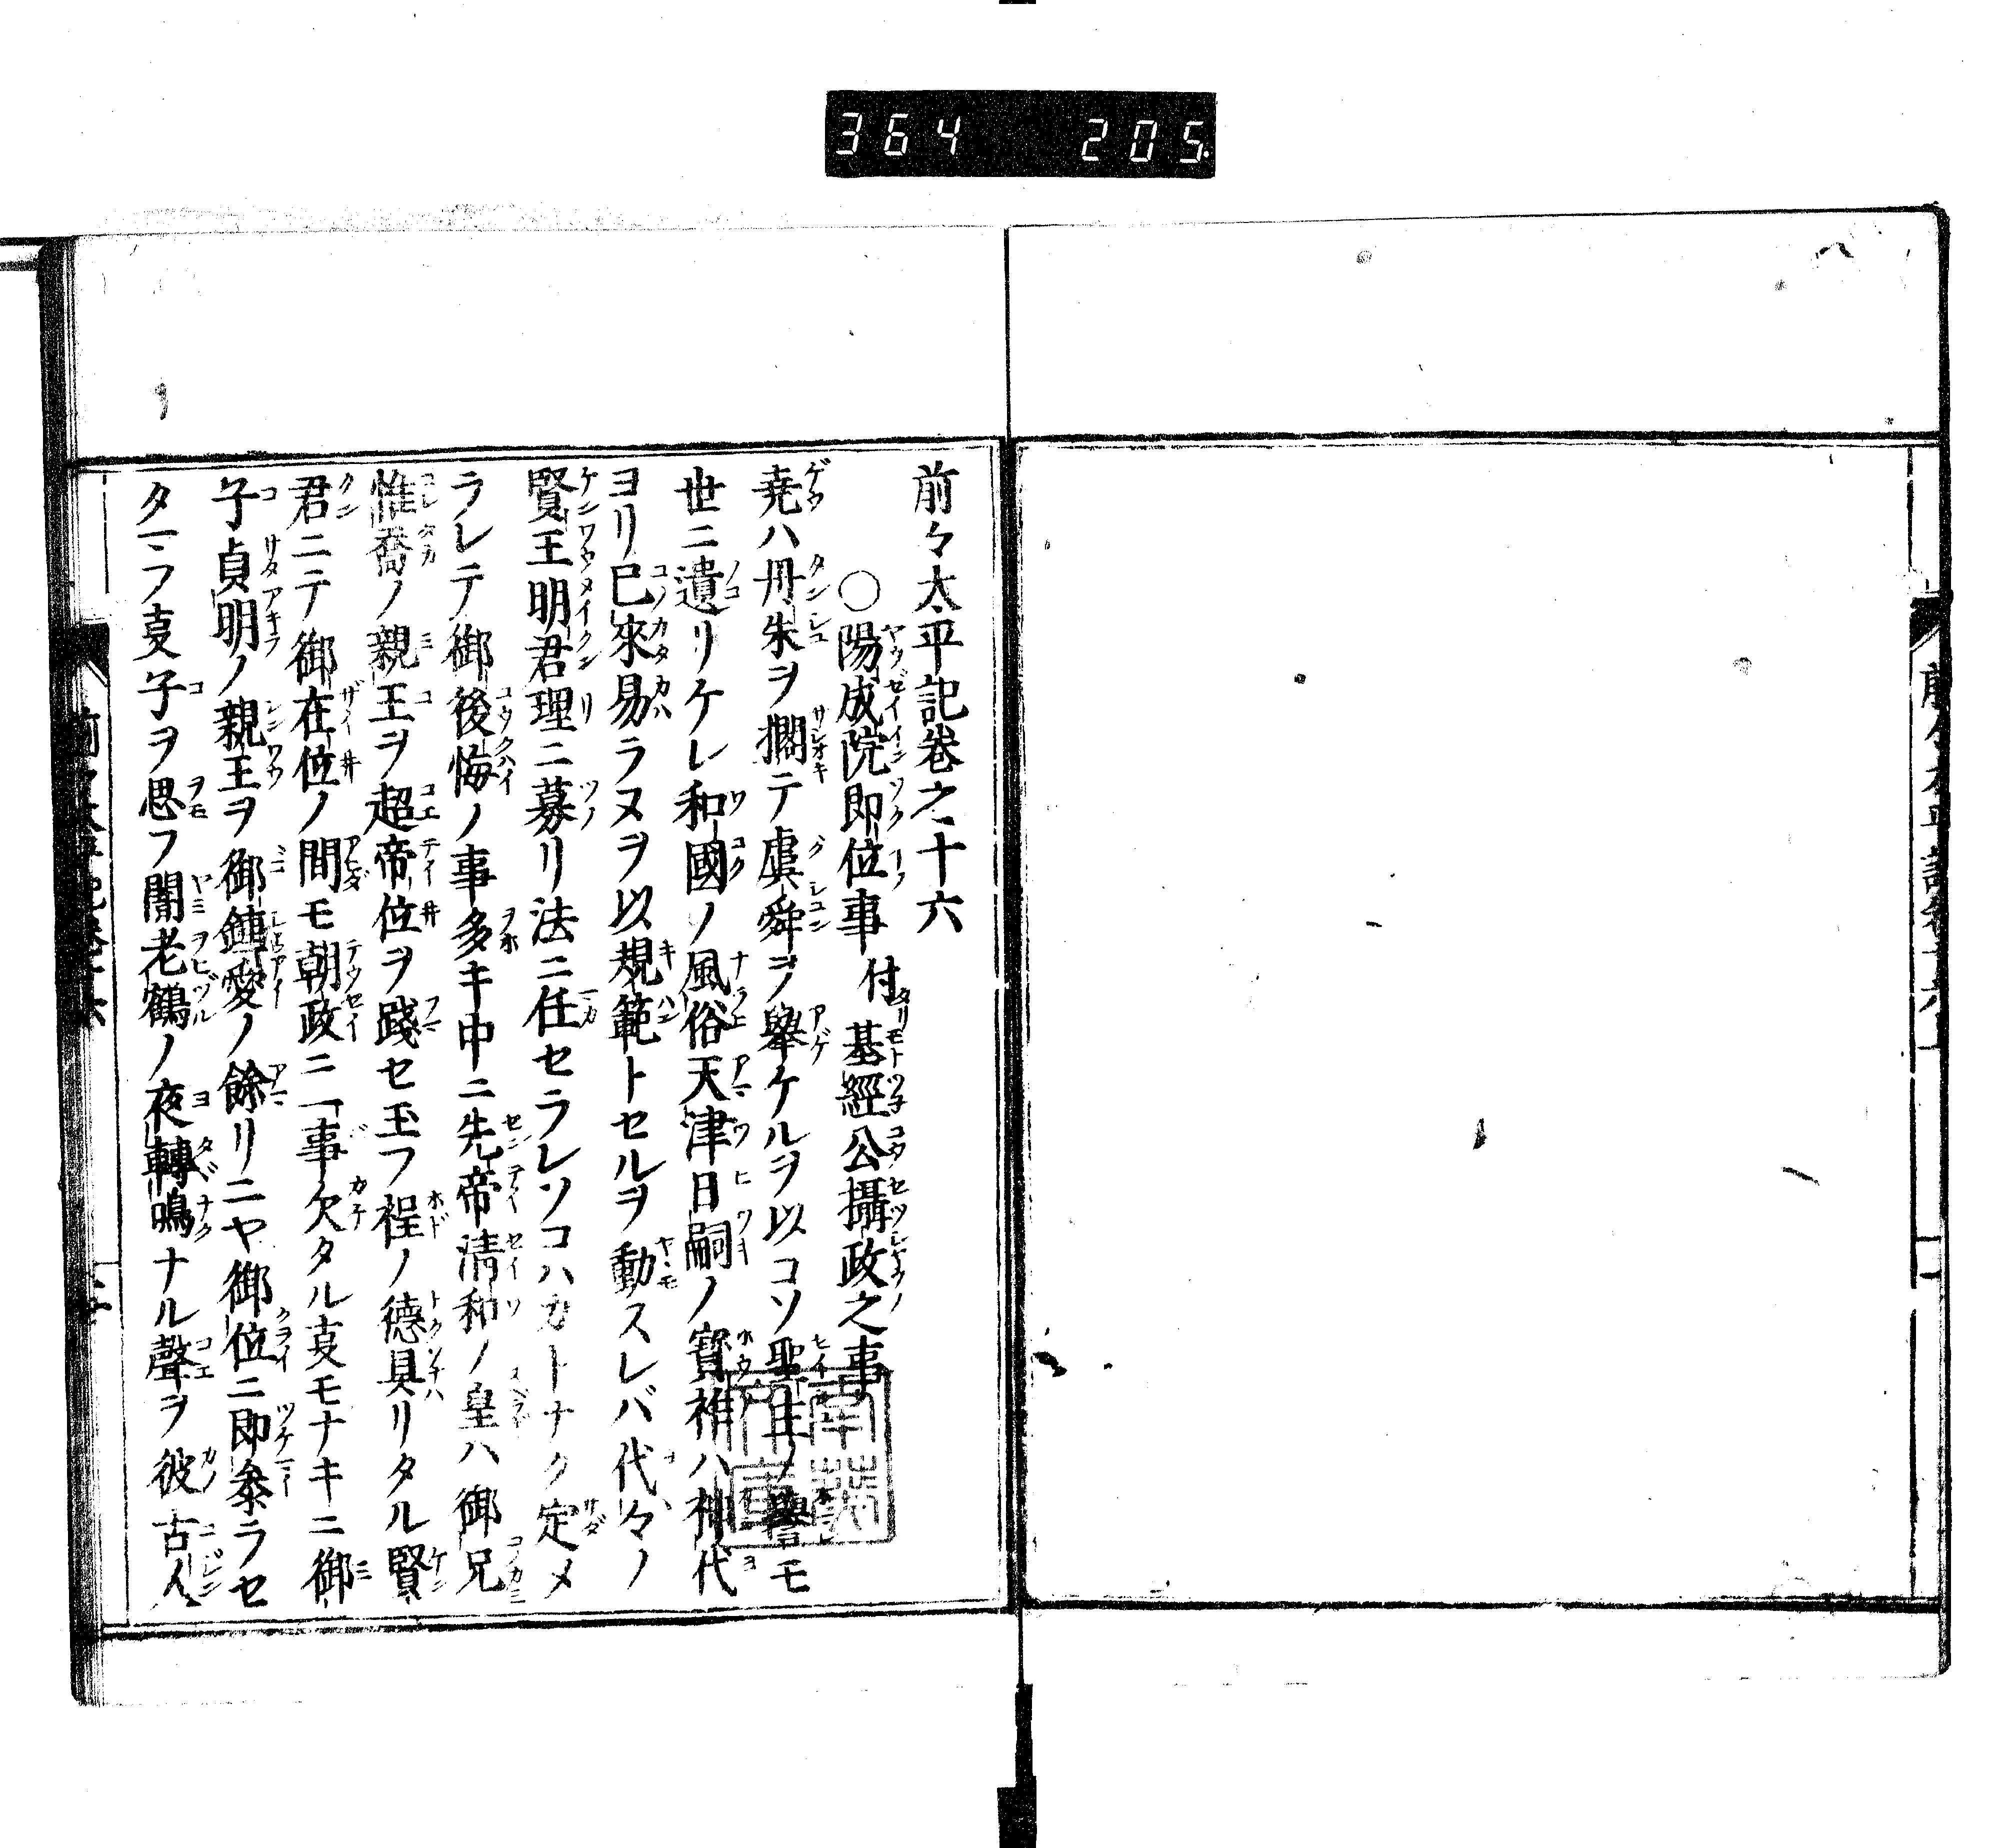 364 205
前々太平記巻之十六
○陽成院即位事付基經公攝政之事
堯ハ丹朱ヲ擱テ虞舜ヲ擧ケルヲ以コソ聖主ノ譽モ
世ニ遺リケレ和國ノ風俗天津日嗣ノ寳祚ハ神代
ヨリ已來易ラヌヲ以規範トセルヲ動スレバ代々ノ
賢王明君理ニ募リ法ニ任セラレソコハカトナク定メ
ラレテ御後悔ノ事多キ中ニ先帝清和ノ皇ハ御兄
惟喬ノ親王ヲ超帝位ヲ踐セ玉フ程ノ德具リタル賢
君ニテ御在位ノ間モ朝政ニ一事欠タル㕝モナキニ御
子貞明ノ親王ヲ御鍾愛ノ餘リニヤ御位ニ即参ラセ
タマフ㕝子ヲ思フ闇老鶴ノ夜轉鳴ナル聲ヲ彼古人